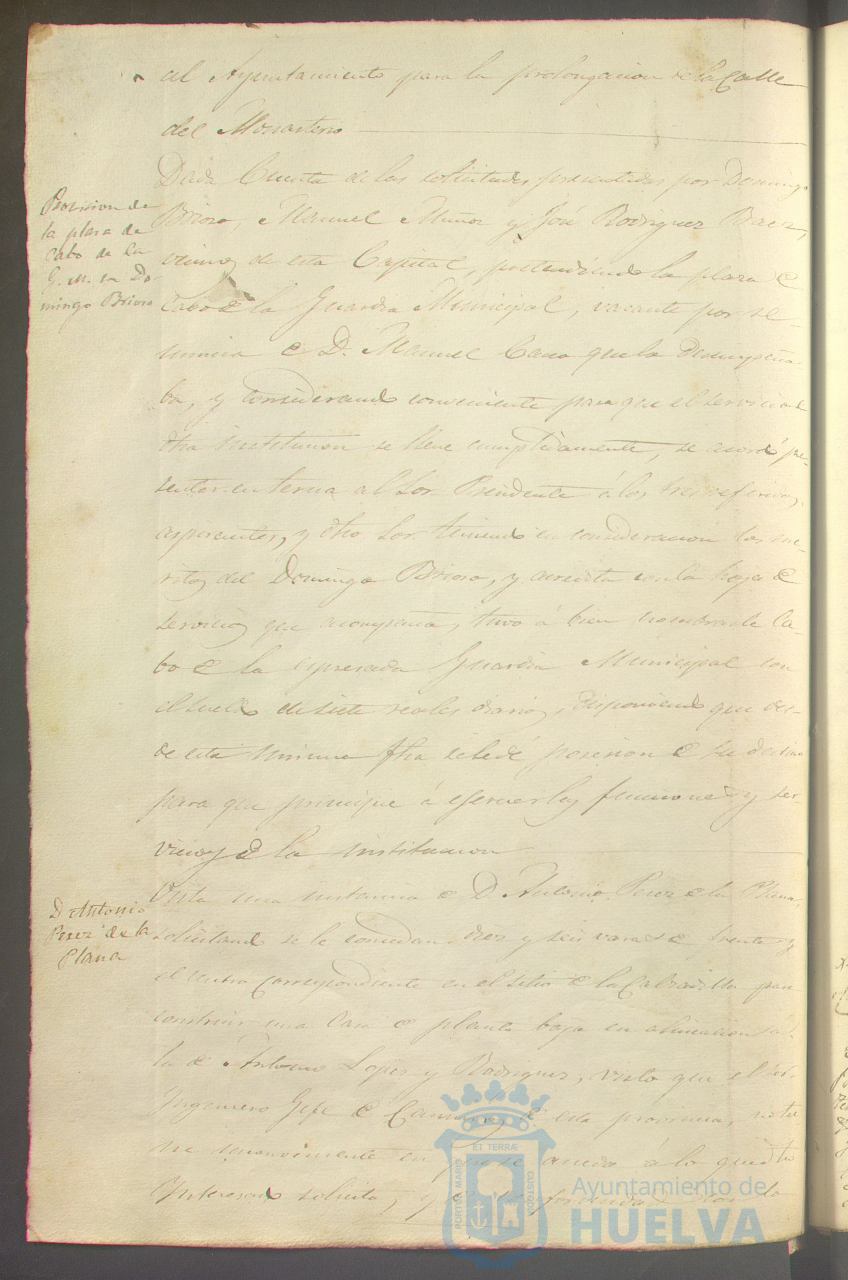 al Ayuntamiento para la prolongacion de la Calle
del Monasterio
Provision de
la plaza de
Cabo de la
G. M. en Do
mingo Brioso
Dada Cuenta de las solicitudes presentadas por Domingo
Brioso, Manuel Muñoz y José Rodriguez Baez,
vecinos de esta Capital, pretendiendo la plaza de
Cabo de la Guardia Municipal, vacante por re-
nuncia de D. Manuel Cano que la desempeña
ba, y considerando conveniente para que el servicio de
dha institucion se llene cumplidamente, se acordó pre-
sentar en terna al Sor. Presidente á los tres referidos
aspirantes, y dho Sor. teniendo en consideracion los me-
ritos del Domingo Brioso, y acredita con la hoja de
servicios que acompaña, tuvo á bien nombrarle Ca-
bo de la espresada Guardia Municipal con
el sueldo de siete reales diarios, disponiendo que des-
de esta misma fha se le dé posesion de su destino
para que principie á ejercer las funciones y ser-
vicios de la institucion
D. Antonio
Perez de la
Plana
Vista una instancia de D. Antonio Perez de la Plana,
solicitando se le concedan diez y seis varas de frente y
el centro correspondiente en el sitio de la Calzadilla para
construir una Casa de planta baja en alineacion á
la de Antonio Lopez y Rodriguez, visto que el Sor.
Ingeniero Gefe de Caminos de esta provincia, no tie
ne inconveniente en que se acceda á lo que dho
Interesado solicita, y
PORTUS MARIS
ET TERRÆ
CUSTODIA
Ayuntamiento de
HUELVA